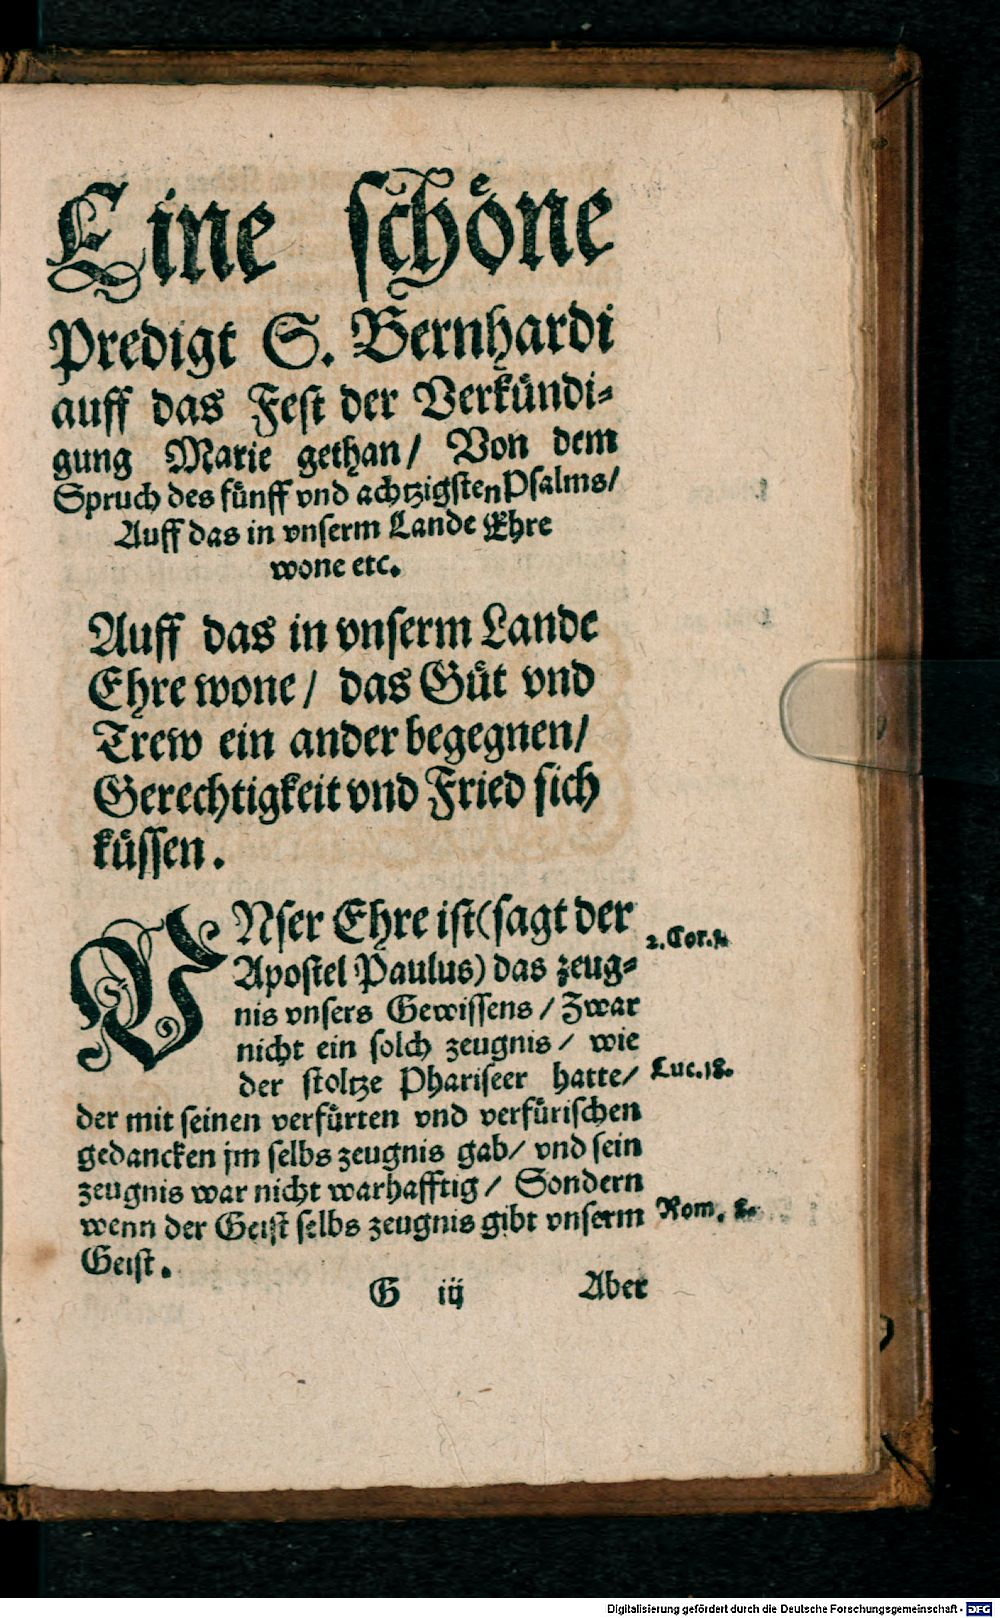 Eine schöne
Predigt S. Bernhardi
auff das Fest der Verkündi-
gung Marie gethan/ Von dem
Spruch des fünff vnd achtzigsten Psalms/
Auff das in vnserm Lande Ehre
wone etc.
Auff das in vnserm Lande
Ehre wone/ das Güt vnd
Trew ein ander begegnen/
Gerechtigkeit vnd Fried sich
küssen.
VNser Ehre ist (sagt der
Apostel Paulus) das zeug-
nis vnsers Gewissens/ Zwar
nicht ein solch zeugnis/ wie
der stoltze Phariseer hatte/
der mit seinen verfürten vnd verfürischen
gedancken jm selbs zeugnis gab/ vnd sein
zeugnis war nicht warhafftig/ Sondern
wenn der Geist selbs zeugnis gibt vnserm
Geist.
2. Cor. 1.
Luc. 18.
Rom. 8.
G iij Aber
Digitalisierung gefördert durch die Deutsche Forschungsgemeinschaft - DFG